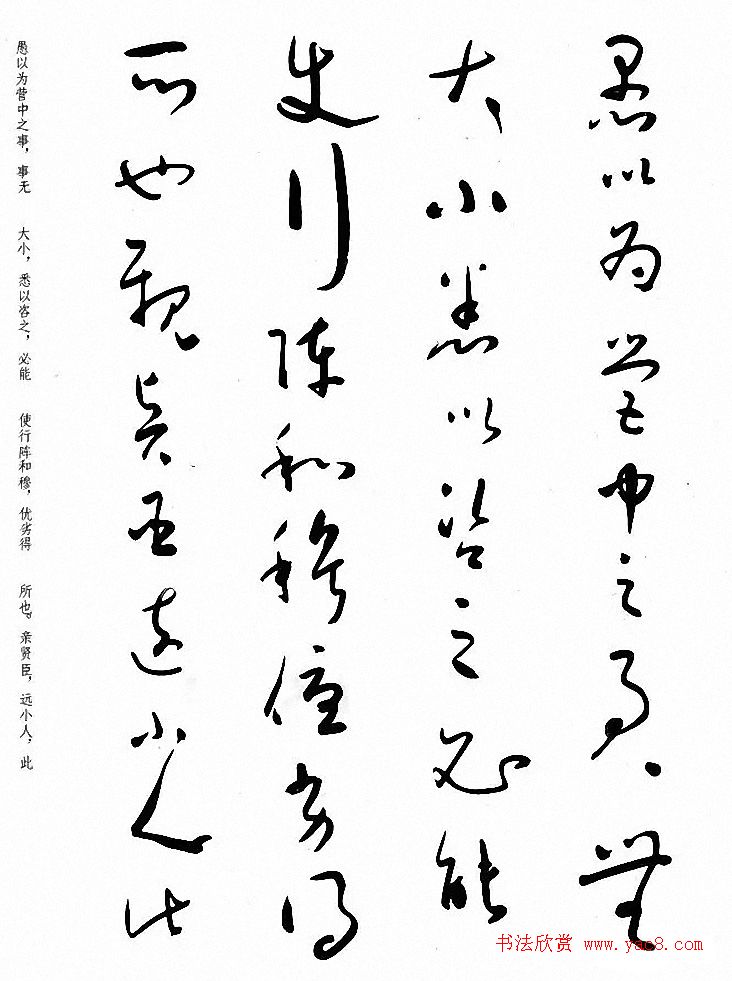 愚以为营中之事、无
大小悉以咨之必能
使行阵和穆优劣得
所也亲贤臣远小人此
愚以为营中之事，事无 大小，悉以咨之，必能 使行阵和穆，优劣得 所也。亲贤臣，远小人，此
书法欣赏 www.yac8.com